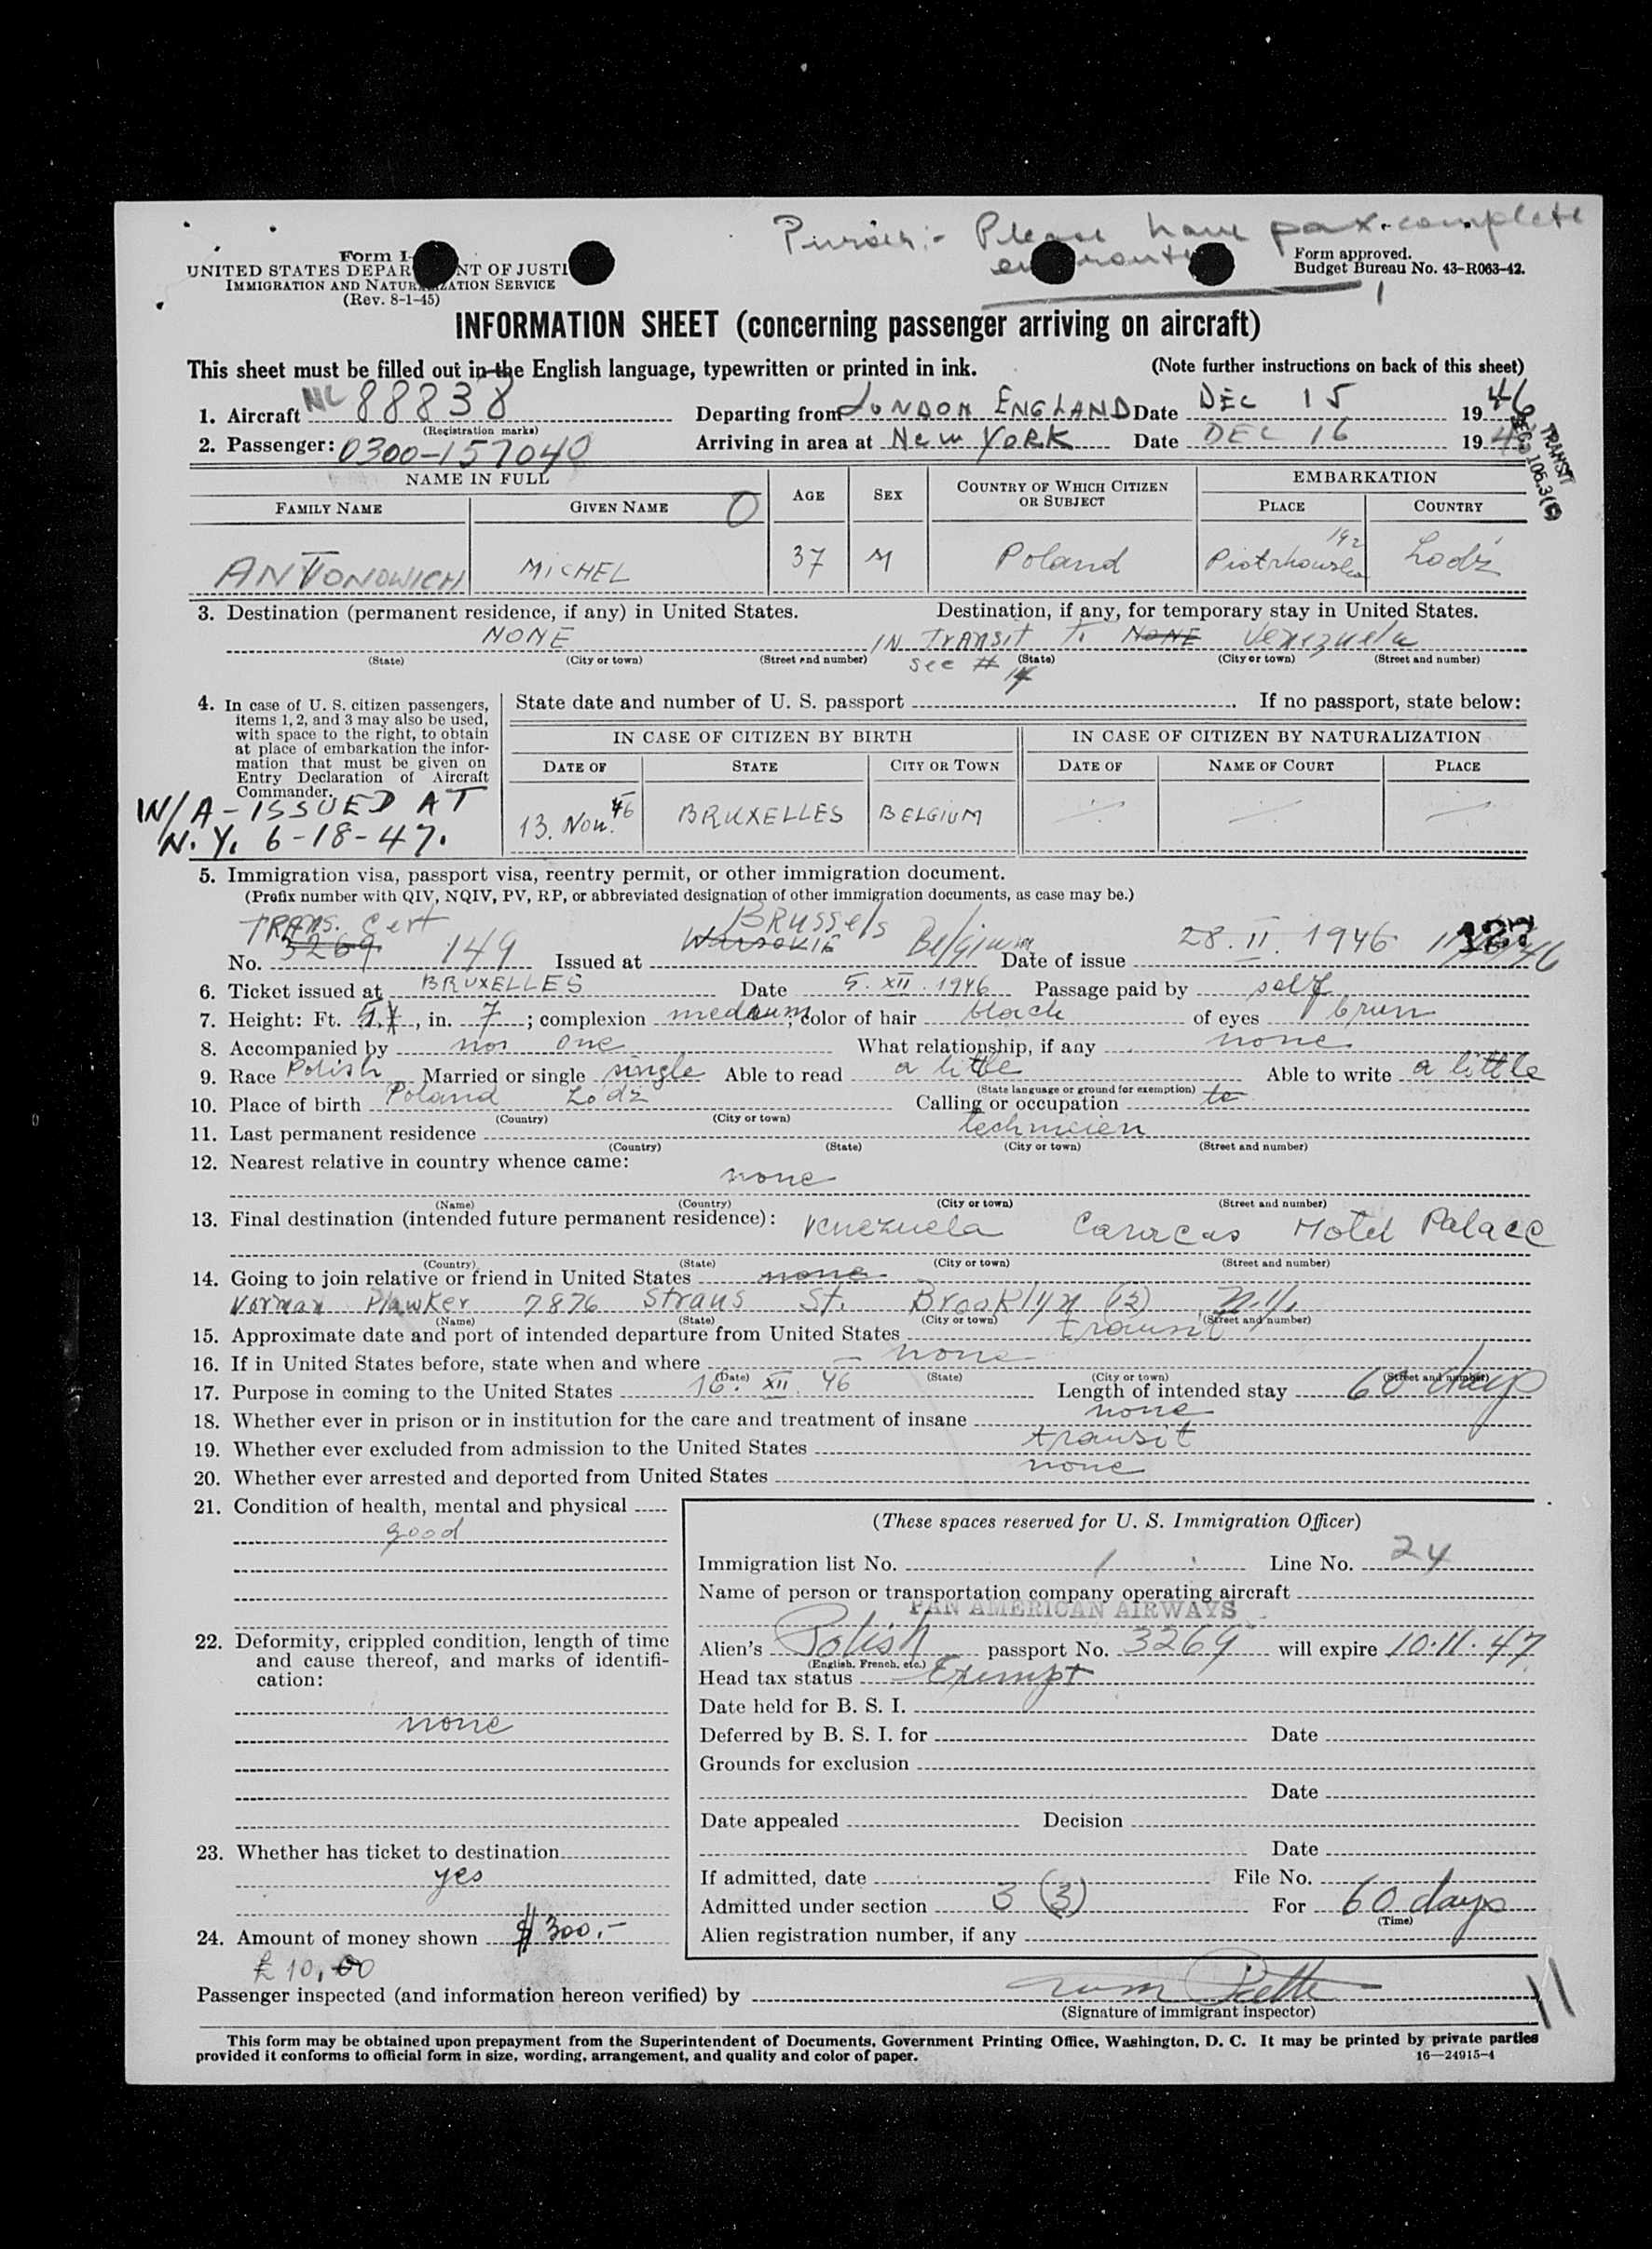 Purser:- Please have pax. complete
enroute
Form I-
UNITED STATES DEPAR NT OF JUSTI
IMMIGRATION AND NATUR ZATION SERVICE
(Rev. 8-1-45)
Form approved.
Budget Bureau No. 43-R063-42.
INFORMATION SHEET (concerning passenger arriving on aircraft)
This sheet must be filled out in the English language, typewritten or printed in ink. (Note further instructions on back of this sheet)
1. Aircraft NC 88838 Departing from LONDON ENGLAND Date DEC 15 1946
(Registration marks)
2. Passenger: 0300-157040 Arriving in area at New YORK Date DEC 16 194
TRANSIT
SEC. 105.3(c)
NAME IN FULL AGE SEX COUNTRY OF WHICH CITIZEN OR SUBJECT EMBARKATION
FAMILY NAME GIVEN NAME O PLACE COUNTRY
ANTONOWICH MICHEL 37 M Poland Piotrkowska 192 Lodź
3. Destination (permanent residence, if any) in United States. Destination, if any, for temporary stay in United States.
NONE IN TRANSIT To NONE Venezuela
(State) (City or town) (Street and number) see # 14 (State) (City or town) (Street and number)
4. In case of U. S. citizen passengers, items 1, 2, and 3 may also be used, with space to the right, to obtain at place of embarkation the information that must be given on Entry Declaration of Aircraft Commander.
State date and number of U. S. passport . If no passport, state below:
IN CASE OF CITIZEN BY BIRTH IN CASE OF CITIZEN BY NATURALIZATION
DATE OF STATE CITY OR TOWN DATE OF NAME OF COURT PLACE
13. Nov. 46 BRUXELLES BELGIUM
W/A-ISSUED AT
N.Y. 6-18-47.
5. Immigration visa, passport visa, reentry permit, or other immigration document.
(Prefix number with QIV, NQIV, PV, RP, or abbreviated designation of other immigration documents, as case may be.)
TRANS. Cert BRUSSELS
No. 3269 149 Issued at Belgium Date of issue 28. II. 1946 127
6. Ticket issued at BRUXELLES Date 5. XII. 1946 Passage paid by self
7. Height: Ft. 5, in. 7; complexion medium; color of hair black of eyes brun
8. Accompanied by nor one What relationship, if any none
9. Race Polish Married or single single Able to read a little Able to write a little
(State language or ground for exemption)
10. Place of birth Poland Lodz Calling or occupation to
(Country) (City or town)
11. Last permanent residence technicien
(Country) (State) (City or town) (Street and number)
12. Nearest relative in country whence came:
none
(Name) (Country) (City or town) (Street and number)
13. Final destination (intended future permanent residence): Venezuela Caracas Hotel Palace
(Country) (State) (City or town) (Street and number)
14. Going to join relative or friend in United States none
Norman Plawker 7876 Straus St. Brooklyn (12) N.Y.
(Name) (State) (City or town) (Street and number)
15. Approximate date and port of intended departure from United States transit
16. If in United States before, state when and where none
(Date) (State) (City or town) (Street and number)
17. Purpose in coming to the United States 16. XII 46 Length of intended stay 60 days
18. Whether ever in prison or in institution for the care and treatment of insane none
19. Whether ever excluded from admission to the United States transit
20. Whether ever arrested and deported from United States none
21. Condition of health, mental and physical
good
22. Deformity, crippled condition, length of time and cause thereof, and marks of identification:
none
23. Whether has ticket to destination
yes
24. Amount of money shown $300.-
£ 10,00
(These spaces reserved for U. S. Immigration Officer)
Immigration list No. 1 Line No. 24
Name of person or transportation company operating aircraft
PAN AMERICAN AIRWAYS
Alien's Polish passport No. 3269 will expire 10.11.47
(English, French, etc.)
Head tax status Exempt
Date held for B. S. I.
Deferred by B. S. I. for Date
Grounds for exclusion
Date
Date appealed Decision
Date
If admitted, date File No.
Admitted under section 3 (3) For 60 days
(Time)
Alien registration number, if any
Passenger inspected (and information hereon verified) by
(Signature of immigrant inspector)
This form may be obtained upon prepayment from the Superintendent of Documents, Government Printing Office, Washington, D. C. It may be printed by private parties
provided it conforms to official form in size, wording, arrangement, and quality and color of paper. 16—24915-4